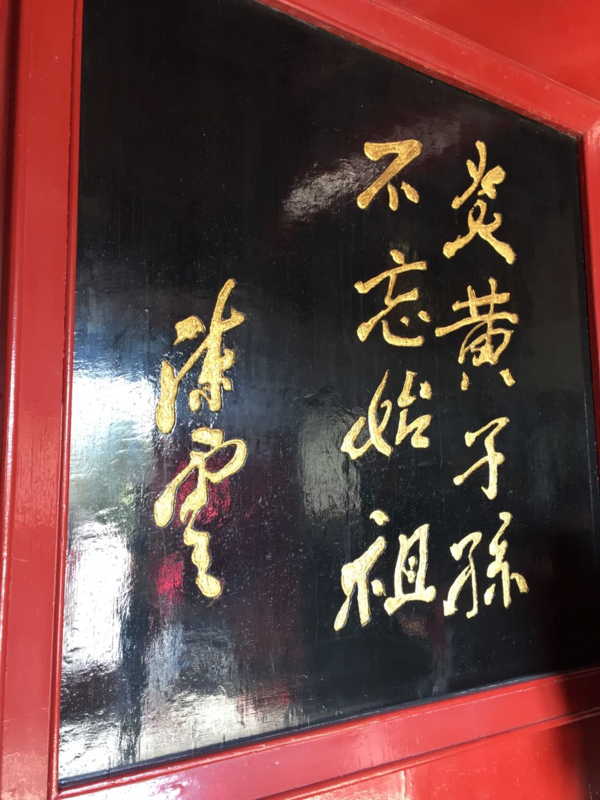 炎黄子孫
不忘始祖
陈雲